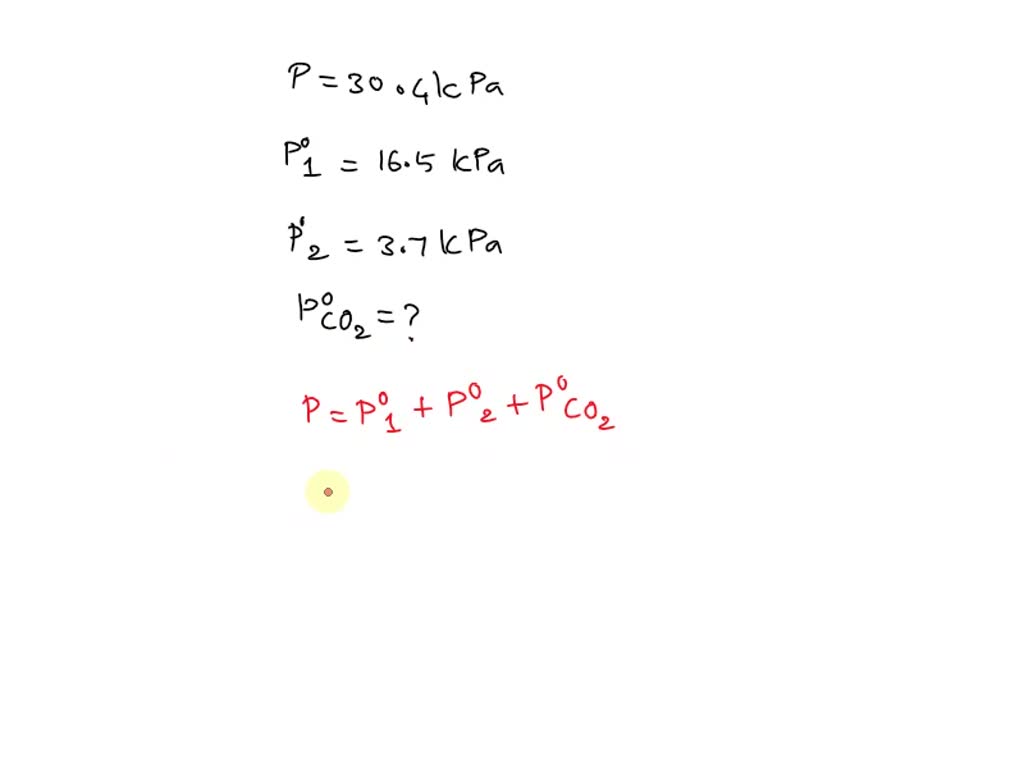 P = 30.4 kPa
P°1 = 16.5 kPa
P'2 = 3.7 kPa
P°CO2 = ?
P = P°1 + P°2 + P°CO2